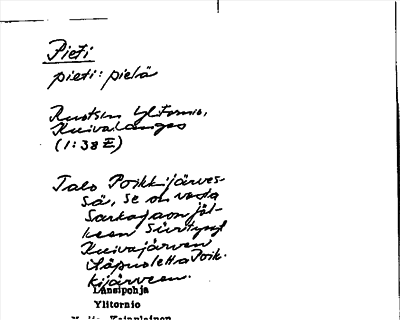 Pieti
pieti: pietä
Ruotsin Ylitornio,
Kuivakangas
(1:38 E)
Talo Poikkijärves-
sä, se on vasta
Sarkajaon jäl-
keen siirtynyt
Kuivajärven
itäpuolelta Poik-
kijärveen.
Länsipohja
Ylitornio